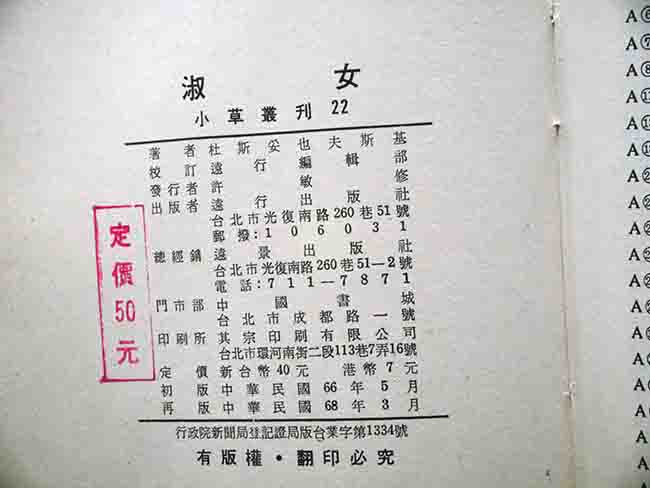 淑女
小草叢刊 22
著者 杜斯妥也夫斯基
校訂 遠行編輯部
發行者 許敏修
出版者 遠行出版社
台北市光復南路260巷51號
郵撥:106031
總經銷 遠景出版社
台北市光復南路260巷51—2號
電話:711—7871
門市部 中國書城
台北市成都路一號
印刷所 其宗印刷有限公司
台北市環河南街二段113巷7弄16號
定價 新台幣40元 港幣7元
初版 中華民國66年5月
再版 中華民國68年3月
行政院新聞局登記證局版台業字第1334號
有版權·翻印必究
定價50元
A⑥
A⑦
A⑧